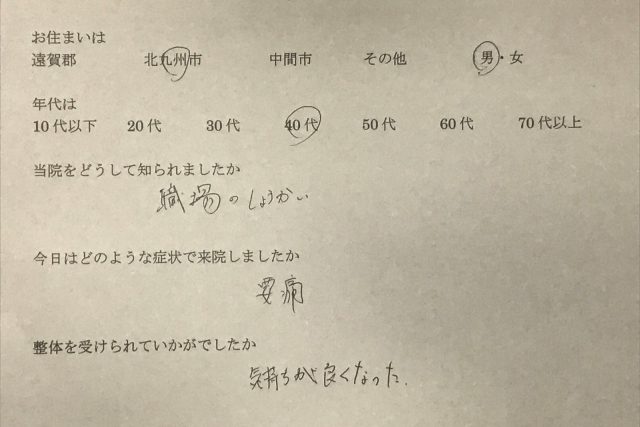 お住まいは
遠賀郡 北九州市 中間市 その他 男・女
年代は
10代以下 20代 30代 40代 50代 60代 70代以上
当院をどうして知られましたか
職場のしょうかい
今日はどのような症状で来院しましたか
要痛
整体を受けられていかがでしたか
気持ちが良くなった.